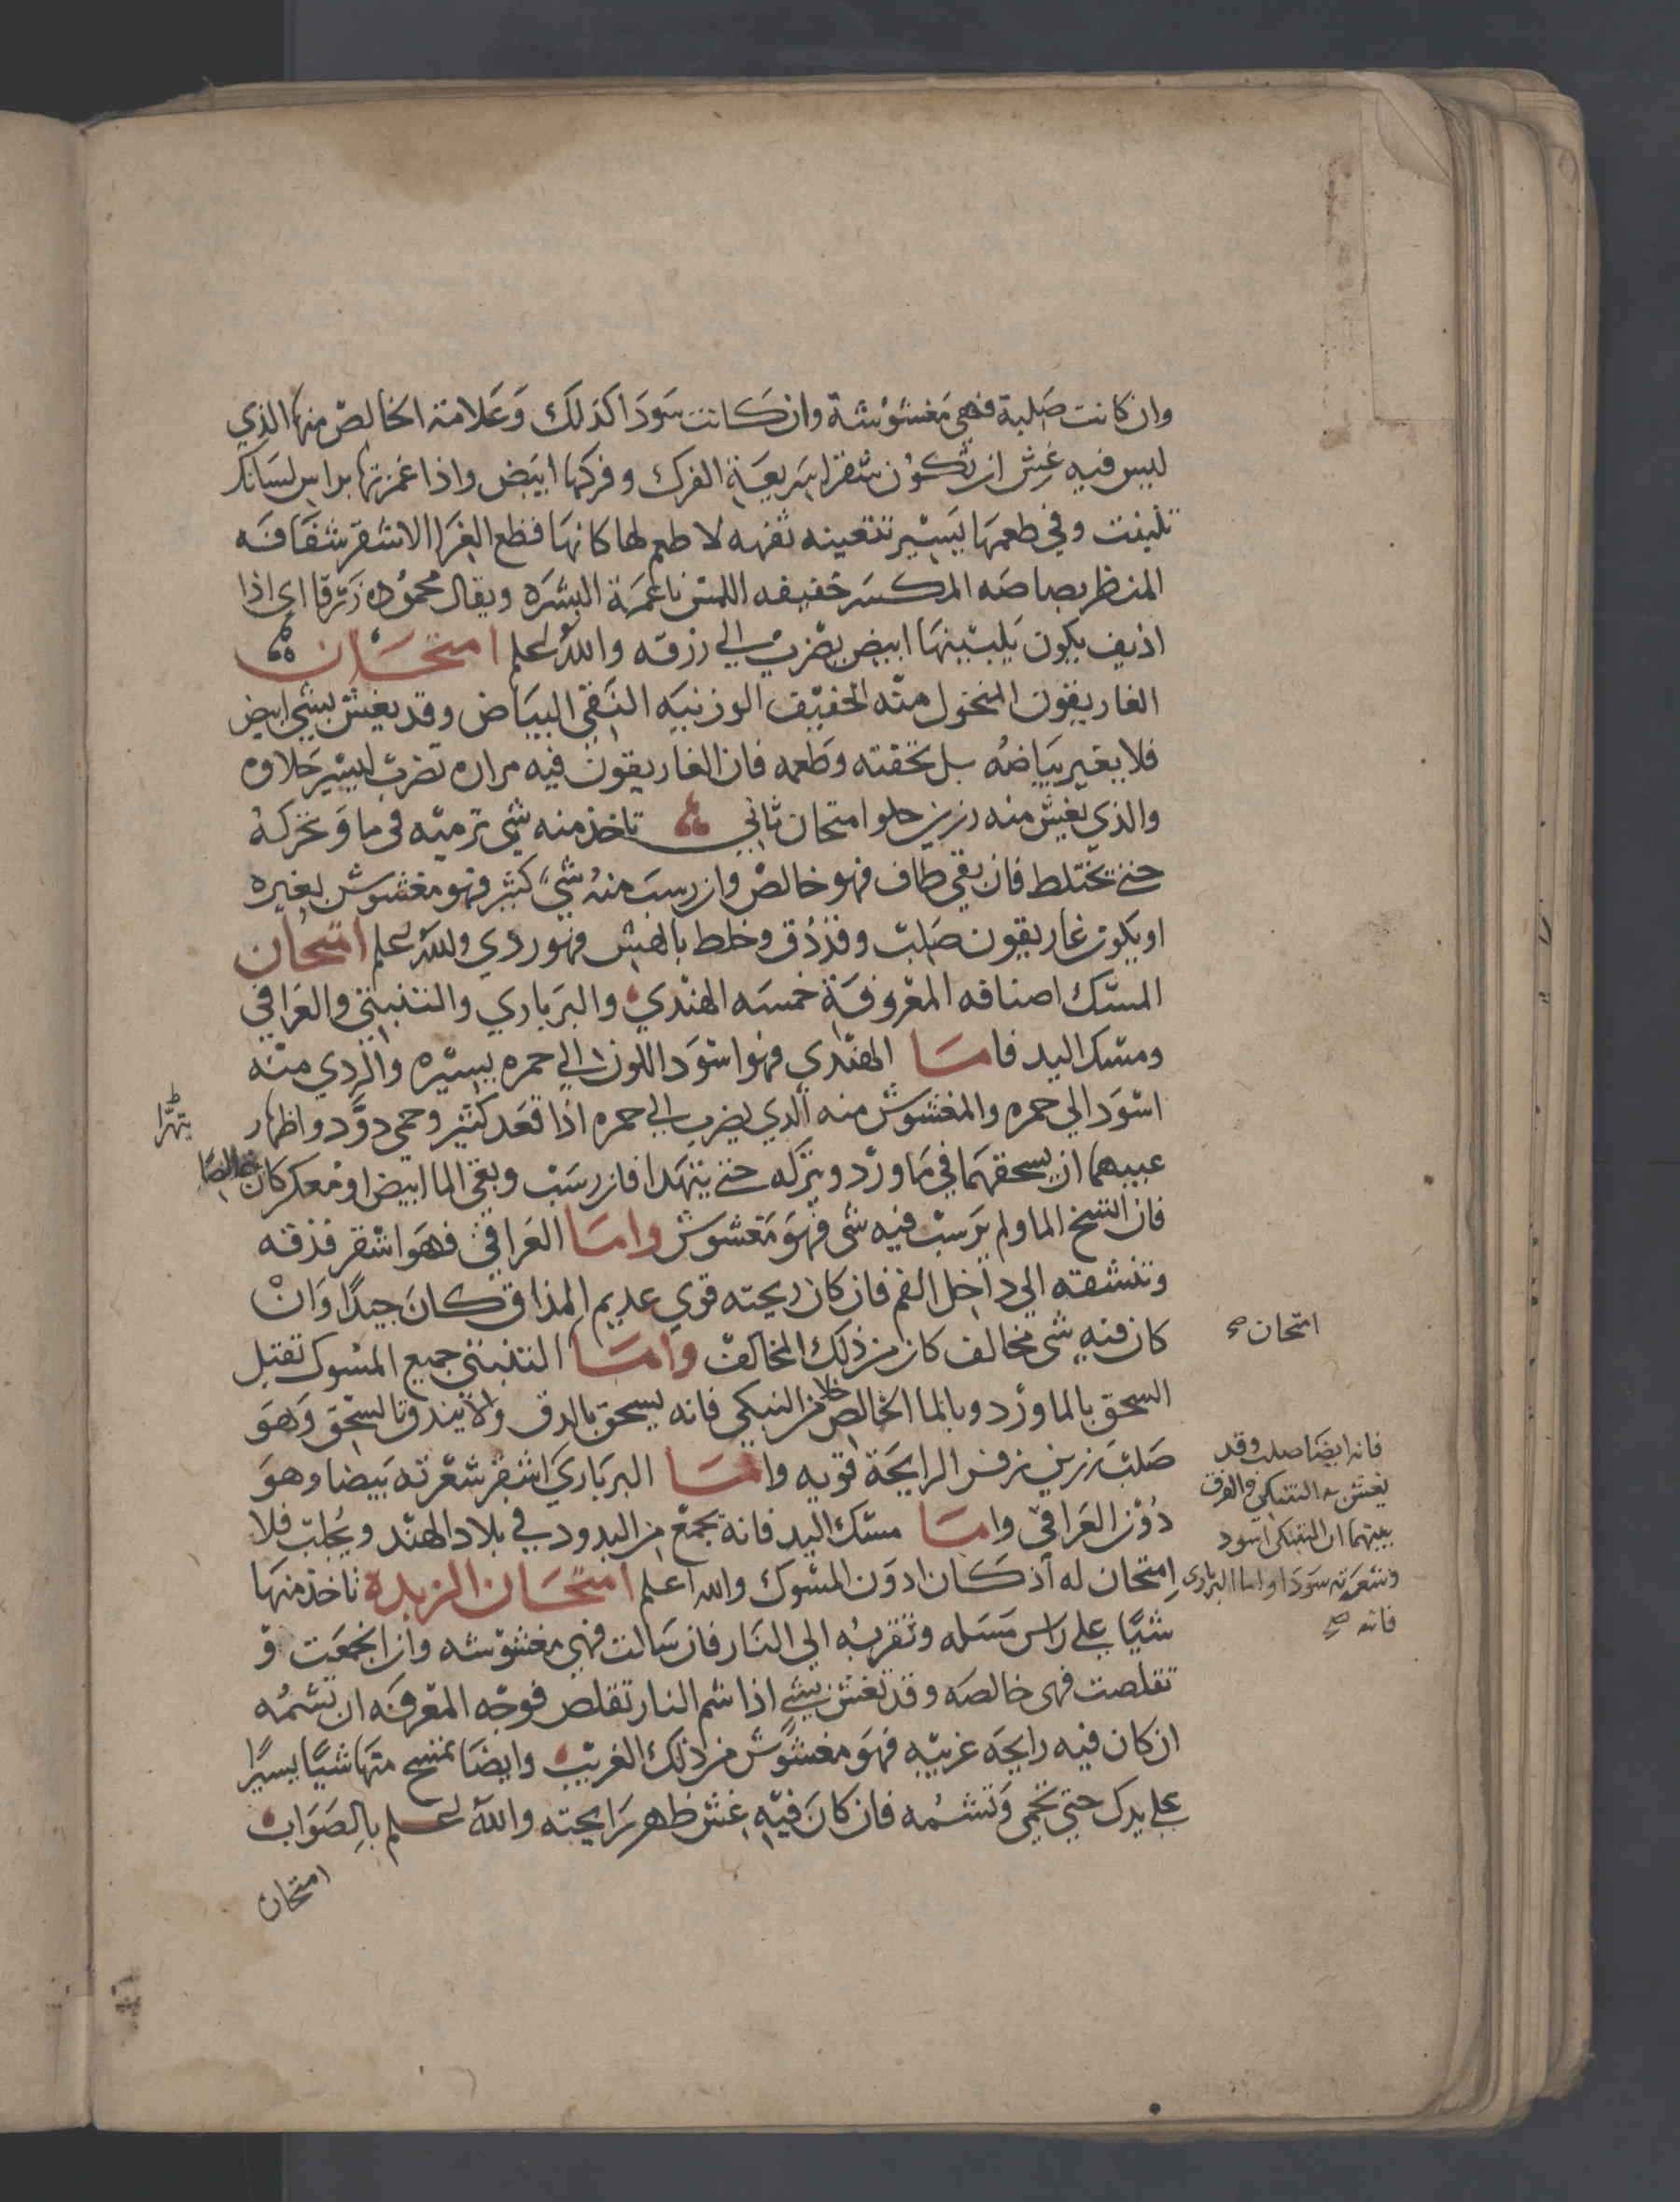 وان كانت صلبة فهي مغشوشة وان كانت سودا كذلك وعلامة الخالص منها الذي
ليس فيه غش ان تكون شقرا سريعة الفرك وفركها ابيض واذا غمزتها براس لسانك
تلينت وفي طعمها يسير تفهه لا طعم لها كانها قطع الغرا الاشقر شفافه
المنظر بصاصه المكسر خفيفه اللمس ناعمة البشره ويقال محموده زرقا اي اذا
اذيف يكون ابيض يضرب الي زرقه والله اعلم امتحان
الغاريقون المنخول منه الخفيف الوزنيه النقي البياض وقد يغش بشي ابيض
فلا يغير بياضه بل تحققته وطعمه فان الغاريقون فيه مراره تضرب ليسير حلاوه
والذي يغش منه رزين حلو امتحان ثاني تاخذ منه شي ترميه في ما وتحركه
حتي يختلط فان بقي طاف فهو خالص وان رسب منه شيء كثير فهو مغشوش بغيره
او يكون غاريقون صلب وقد دق وخلط بالهش فهو ردي والله اعلم امتحان
المسك اصنافه المعروفة خمسه الهندي والبرباري والتنبتي والعراقي
ومسك اليد فاما الهندي فهو اسود اللون الي حمره يسيره والردي منه
اسود الي حمره والمغشوش منه الذي يضرب الي حمره اذا قعد كثير وحمي دود واظهار
عيبهما ان يسحقهما في ماورد ويتركه حتي يتهدا فان رسب وبقي الما ابيض او معكر كان خالصا
يتهرا
فان اتسخ الما ولم يرسب فيه شي فهو مغشوش واما العراقي فهو اشقر فذقه
وتنشقه الي داخل الفم فان كان ريحته قوي عديم المذاق كان جيدا وان
كان فيه شي مخالف كان من ذلك المخالف واما التنبتي جميع المسوك تقبل
امتحان صح
السحق بالماورد وبالما الخالص خلا من التبكي فانه يسحق بالدق ولا يندق بالسحق وهو
صلب رزين زفر الرايحة قويه واما البرباري اشقر شعرته بيضا وهو
فانه ايضا صلب وقد
يغش به التنبكي والفرق
بينهما ان التنبكي اسود
وشعرته سودا واما البرباري
فانه صح
دون العراقي واما مسك اليد فانه يجمع من البدود في بلاد الهند ويجلب فلا
امتحان له اذ كان ادون المسوك والله اعلم امتحان الزبدة تاخذ منها
شيا علي راس مسله وتقربه الي النار فان سالت فهي مغشوشه وان انجمعت و
تقلصت فهي خالصه وقد تغش بشي اذا شم النار تقلص فوجه المعرفه ان تشمه
ان كان فيه رايحه غريبه فهو مغشوش من ذلك الغريب وايضا تمسح منها شيا يسيرا
علي يدك حتي تحمي وتشمه فان كان فيه غش ظهر رايحته والله اعلم بالصواب
امتحان